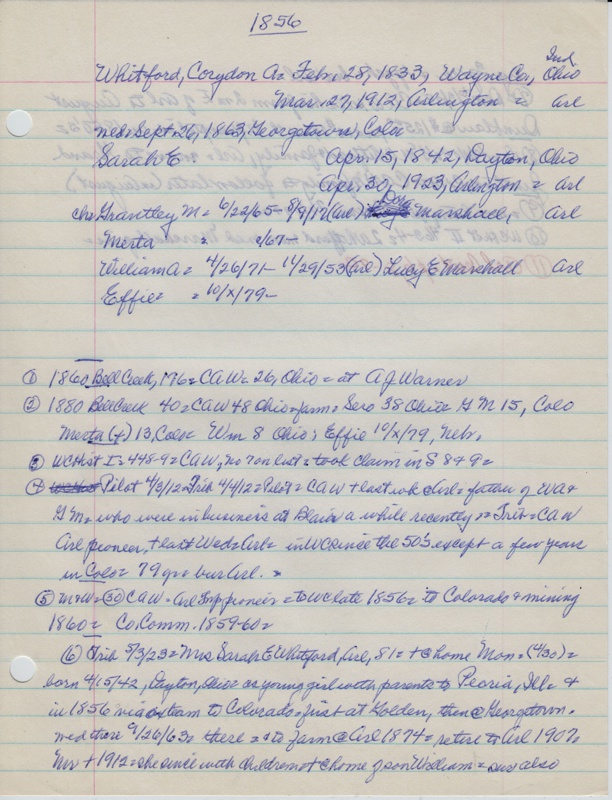 1856
Ind.
Whitford, Corydon A = Feb. 28, 1833, Wayne Co, Ohio
Mar. 27, 1912, Arlington = arl
med Sept 26, 1863, Georgetown, Colo
Sarah E Apr. 15, 1842, Dayton, Ohio
Apr. 30, 1923, Arlington = arl
chr Grantley M = 6/22/65 - 8/9/17 (arl) Marshall, arl
Merta = /67 -
William A = 4/26/71 - 11/29/53 (arl) Lucy E Marshall arl
Effie = = 10/x/79 -
① 1860 Bell Creek, 196 = CAW = 26, Ohio = at A J Warner
② 1880 Bell Creek 40 = CAW 48 Ohio = farm = 38 Ohio = G M 15, Colo
Merta (+) 13, Colo = Wm 8 Ohio; Effie 10/x/79, Nebr.
③ WCHist I = 448-9 = CAW, no 7 on list = took claim in S 8 & 9 =
④ Pilot 4/3/12 = Trib 4/4/12 = Pilot = CAW + last wk @ arl = father of WA &
G M = who were in business at Blair a while recently = Trib = CAW
arl pioneer, + last Wed = arl = in WC since the 50's except a few years
in Colo = 79 yr = bur arl. =
⑤ W & W = ㉚ CAW = arl pioneer = to WC late 1856 = to Colorado & mining
1860 = Co. Comm. 1859-60 =
⑥ Trib 5/3/23 = Mrs Sarah E Whitford, arl, 81 = + @ home Mon = (4/30) =
born 4/15/42, Dayton, Ohio = as young girl with parents to Peoria, Ill = &
in 1856 via ox team to Colorado = first at Golden, then @ Georgetown.
med there 9/26/63 = there = to farm @ arl 1874 = retire to arl 1907 =
Mr + 1912 = she since with children + @ home of son William = sur also